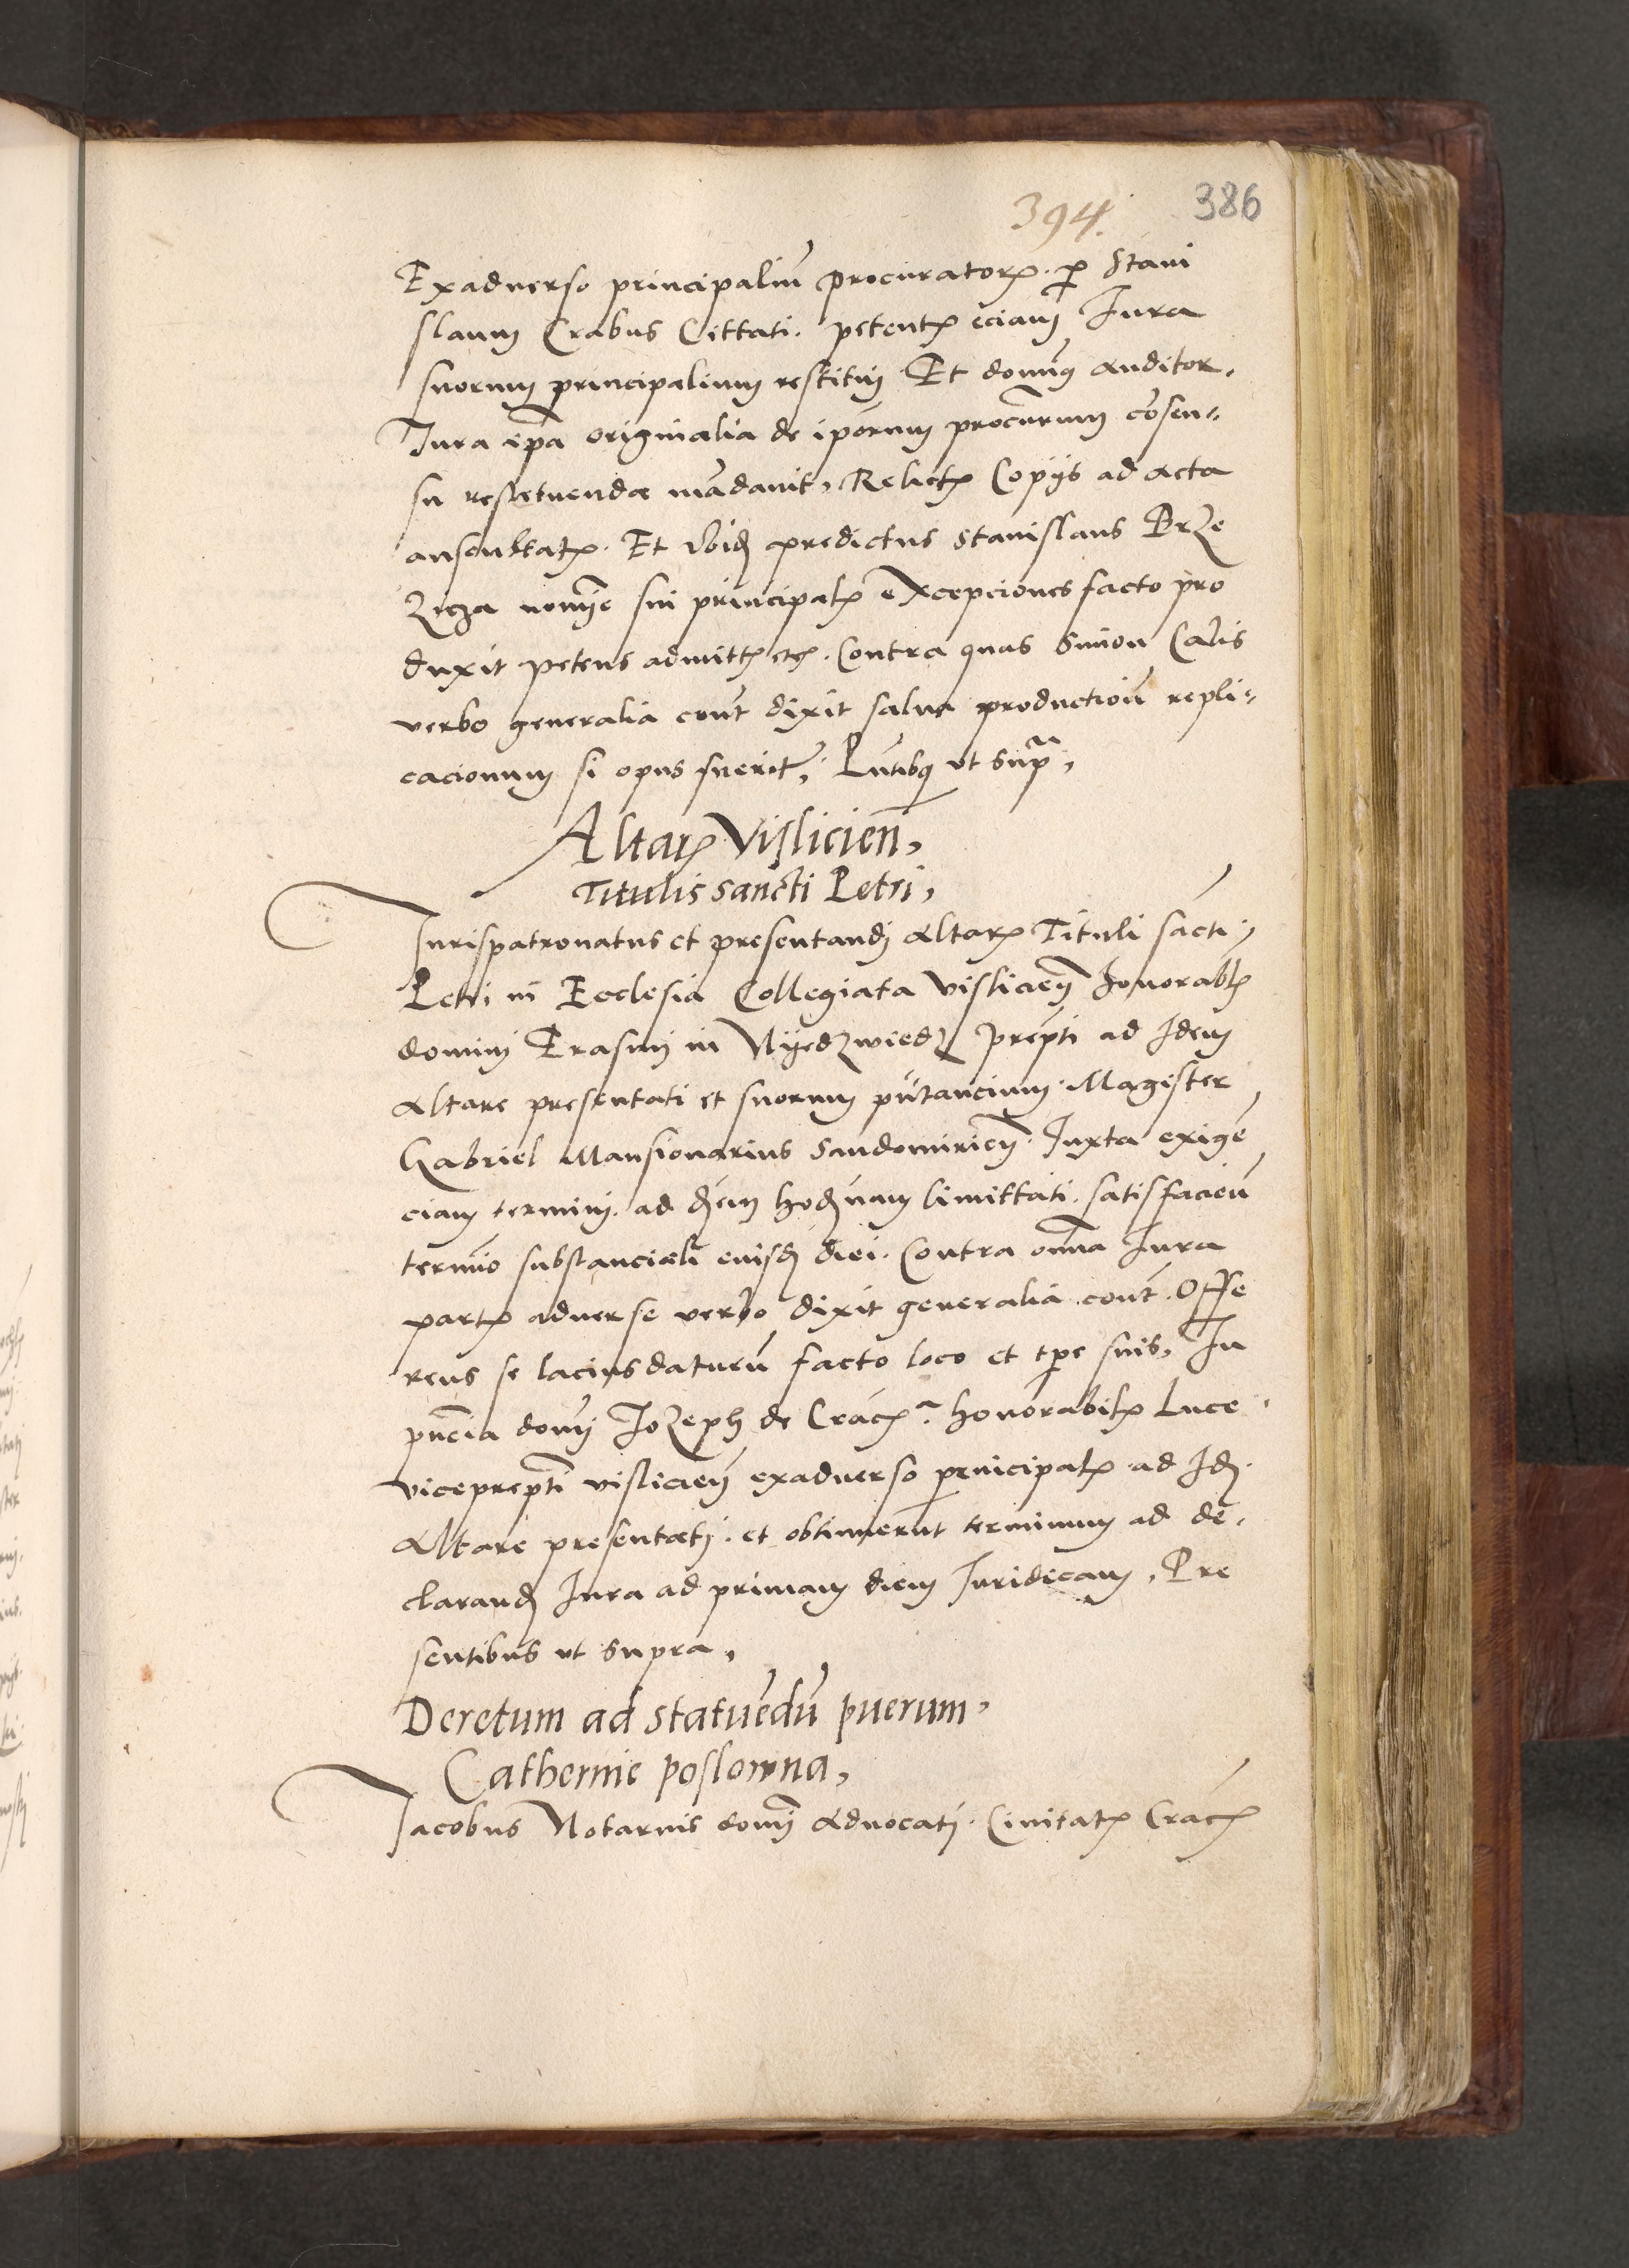 394. 386
Exadverso principaliũ procuratorꝭ. ꝑ Stani
slaum Crabus Cittati. petentꝭ eciam Iura
suorum principalium restitui Et domĩꝯ auditor.
Iura ip̃a originalia de ip̃orum procũrum cõsen„
su restituenda mãdavit, Relictꝭ Copijs ad acta
auscultatꝭ. Et ibid̨ predictus Stanislaus Brze
zicza nomĩe sui principalꝭ exepciones facto pro
duxit petens admittꝭ etꝭ. Contra quas Simon Calis
verbo generalia cont̃ dixit salva productioũ repli„
cacionum si opus fuerit, Pñtibꝯ ut supᷓ,
Altarꝭ Visliciẽn,
Titulis sancti Petri,
Iurispatronatus et presentandi Altarꝭ Tituli sãcti
Petri in Ecclesia Collegiata visliciẽn honorablꝭ
domini Erasmi in Nyedzwiedz prep̃ti ad Idem
Altare presentati et suorum pũtancium. Magister
Gabriel Mansionarius Sandomiriẽn. Iuxta exigẽ
ciam termini. ad diem hod̨nam limittati. satisfacieũ
termĩo substanciali euisd̨ diei. Contra om̃ia Iura
partꝭ adverse verbo dixit generalia cont̃. Offe
rens se lacius daturũ facto loco et tp̃e suis, In
pñcia domĩ Iozeph de Cracꝭᷓ. honorabilꝭ Luce
viceprep̃ti visliciẽn exadverso principalꝭ ad Id̨.
Altare presentati. et obtinuerũt terminum ad de„
clarand̨ Iura ad primam diem Iuridicam, Pre
sentibus ut supra,
Decretum ad statuẽdũ puerum,
Catherine poslowna,
Iacobus Notarius domĩ Advocati. Civitatꝭ Cracꝭ